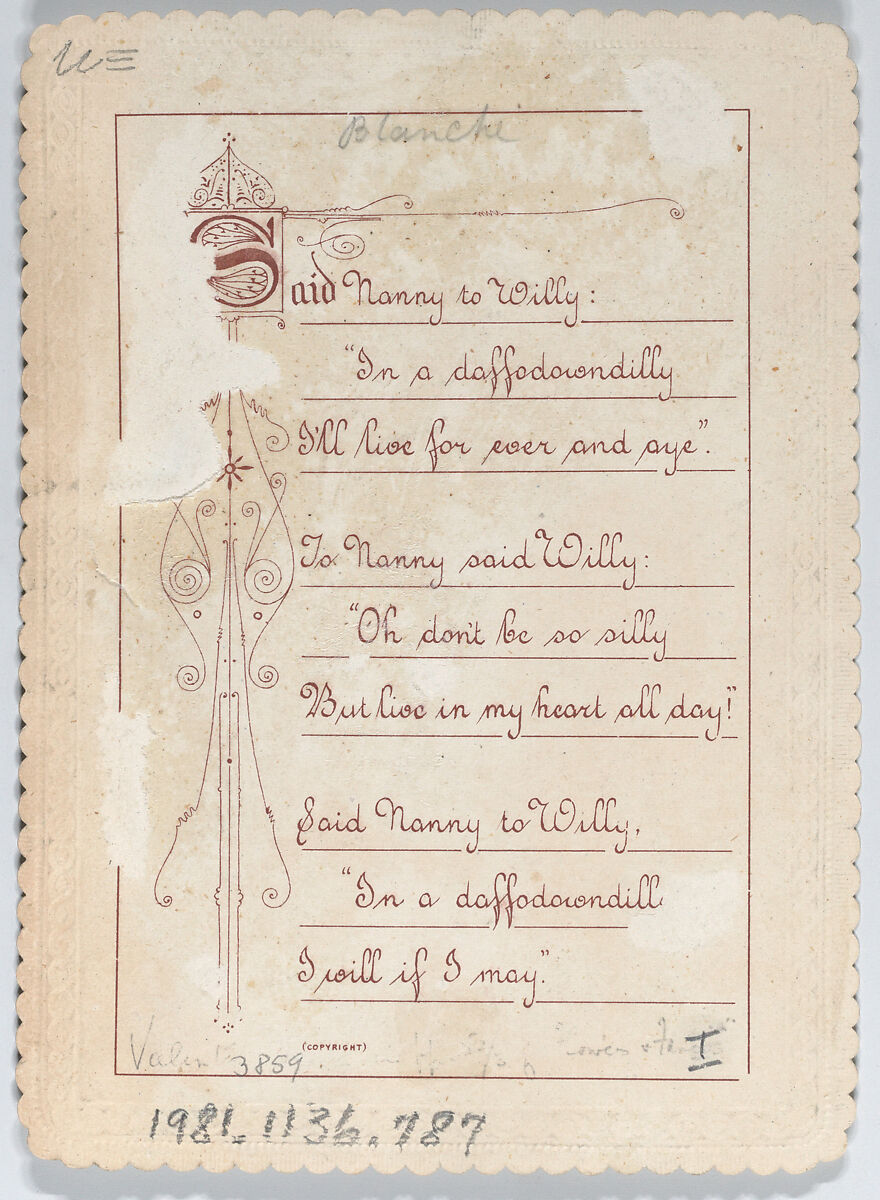 Blanche
Said Nanny to Willy:
"In a daffodowndilly
I'll live for ever and aye".
To Nanny said Willy:
"Oh don't be so silly
But live in my heart all day!"
Said Nanny to Willy,
"In a daffodowndill
I will if I may."
(COPYRIGHT)
3859.
I
1981.1136.787